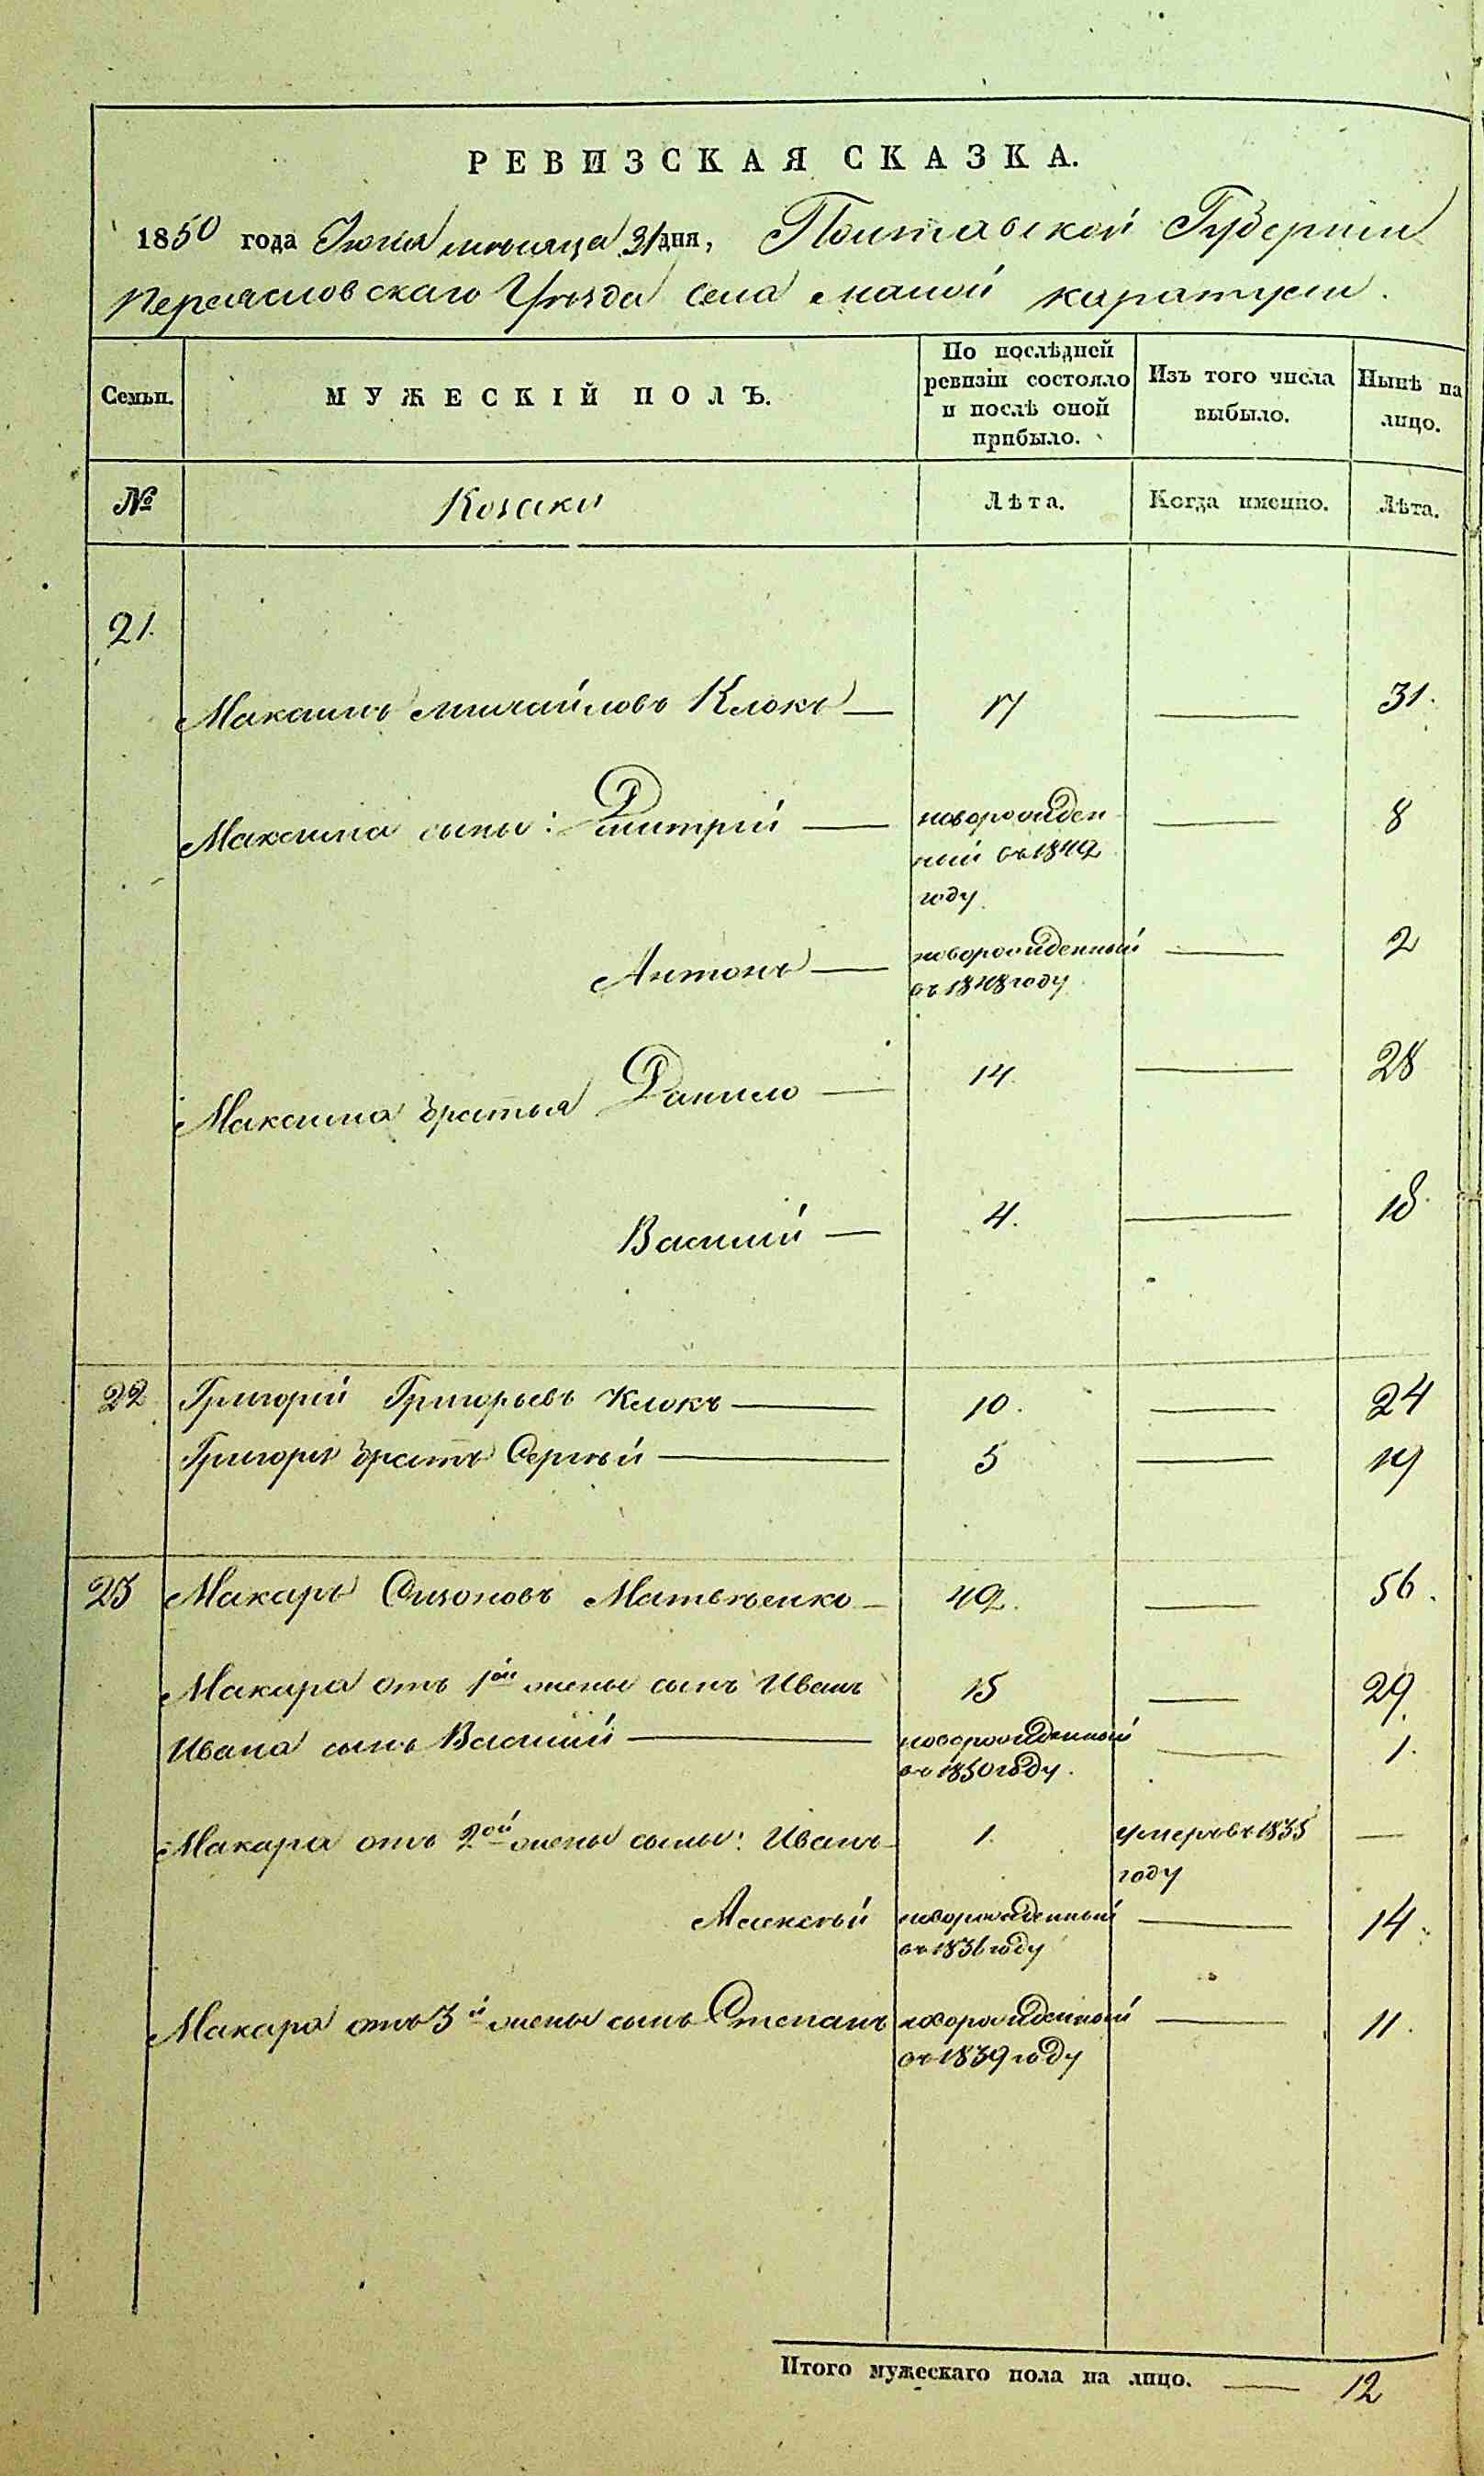 РЕВИЗСКАЯ СКАЗКА.
1850 года Июля месяца 31 дня, Полтавской Губернии
Переясловскаго Уезда села малой каратули.
Семьи.
МУЖЕСКІЙ ПОЛЪ.
По послѣдней
ревизіи состояло
и послѣ оной
прибыло.
Изъ того числа
выбыло.
Нынѣ на
лицо.
№
Козаки
Лѣта.
Когда именно.
Лѣта.
21.
Максимъ михайловъ Клокъ — 17 — 31.
Максима сыны: Дмитрій — новорожден — 8
ний въ 1842
году.
Антонъ — новорожденный — 2
въ 1848 году
Максима братья Данило — 14. — 28
Василий — 4. — 18.
22 Григорій Григорьевъ Клокъ — 10. — 24
Григорія братъ Сергѣй — 5 — 19
23 Макаръ Сизоновъ Матвѣенко — 42. — 56.
Макара отъ 1ой жены сынъ Иванъ 15 — 29.
Ивана сынъ Василий — новорожденный — 1.
въ 1850 году.
Макара отъ 2ой жены сыны: Иванъ — 1. умеръ въ 1835 —
году
Алексѣй новорожденный — 14.
въ 1836 году
Макара отъ 3й жены сынъ Степанъ новорожденный — 11.
въ 1839 году
Итого мужескаго пола на лицо. — 12